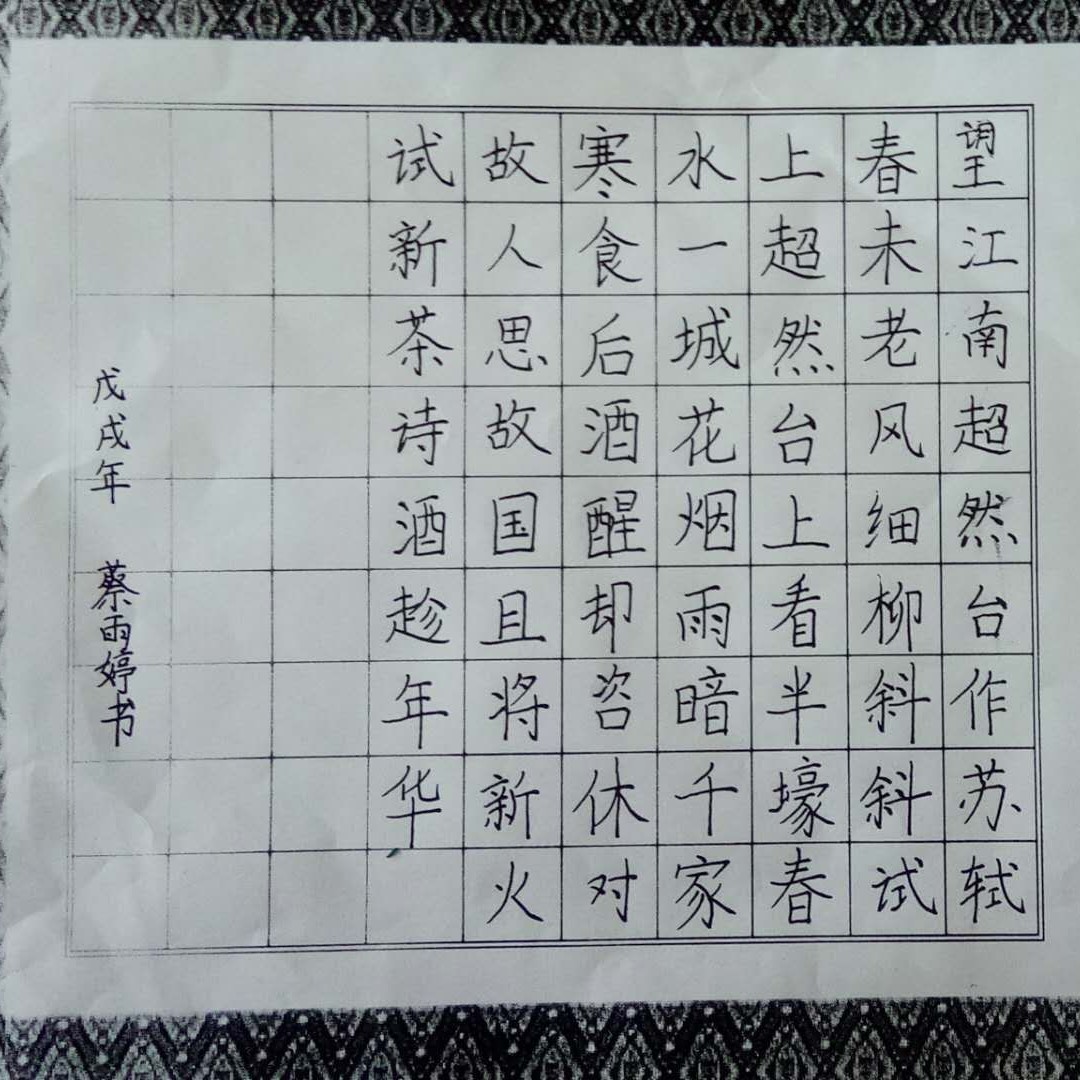 望江南超然台作苏轼
春未老风细柳斜斜试
上超然台上看半壕春
水一城花烟雨暗千家
寒食后酒醒却咨休对
故人思故国且将新火
试新茶诗酒趁年华
戊戌年 蔡雨婷书